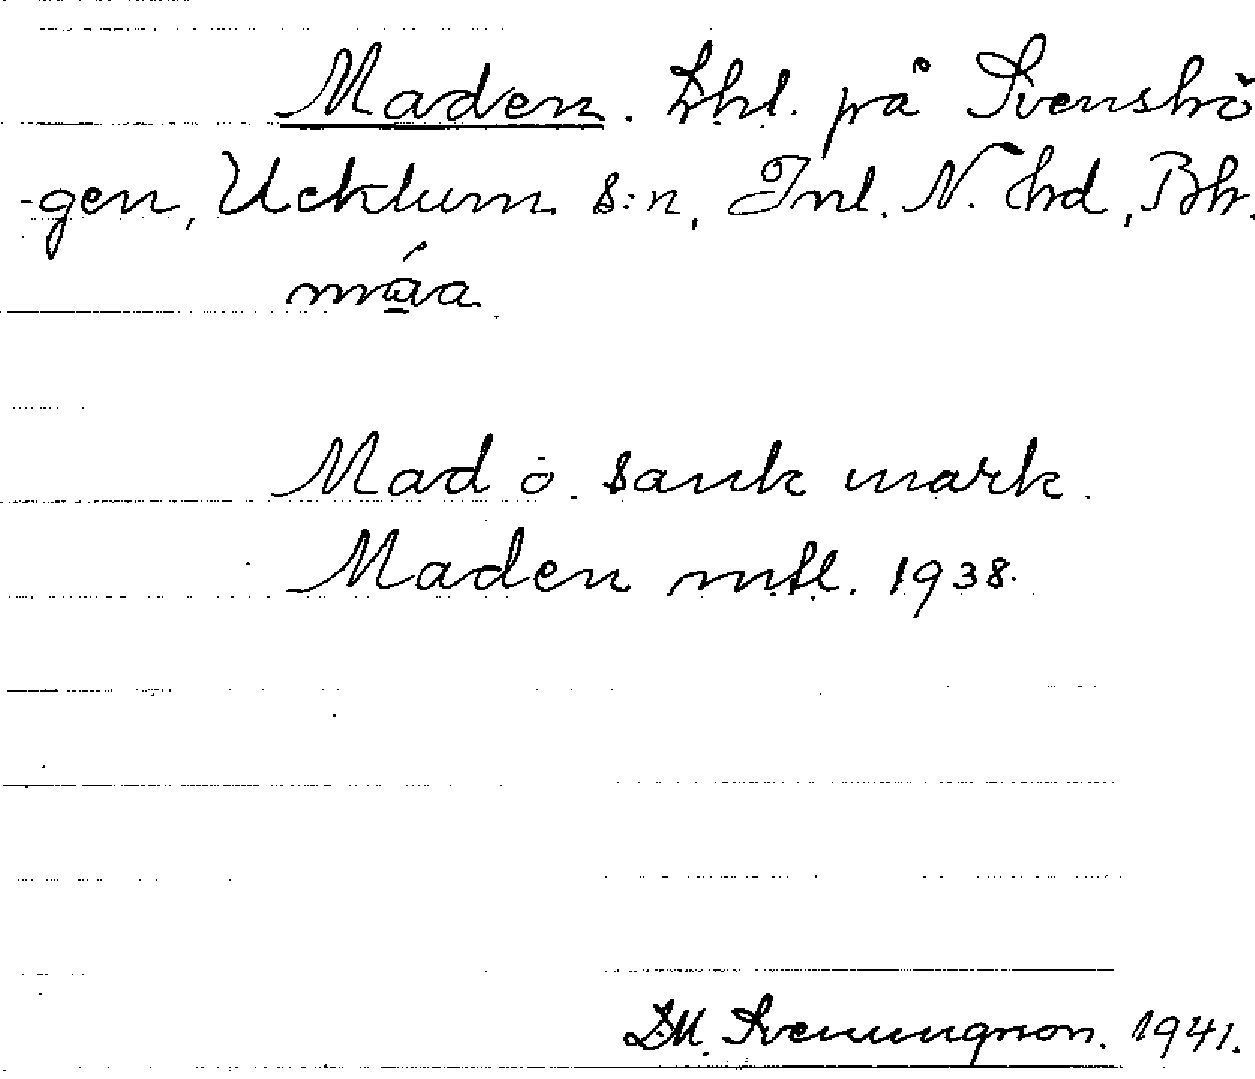 Maden. Lhl. på Svenshö
-gen, Ucklum s:n, Inl. N. hd, Bh.
máa.
Mad o. sank mark.
Maden mtl. 1938.
D.M. Svenungsson. 1941.